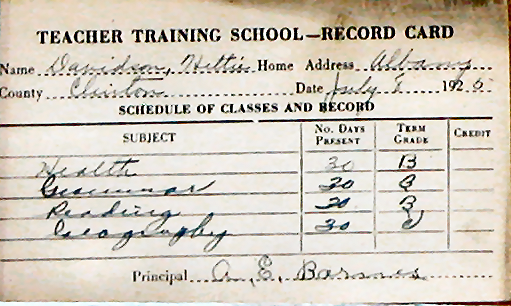 TEACHER TRAINING SCHOOL—RECORD CARD
Name Davidson, Hettie Home Address Albany
County Clinton Date July 8 1925
SCHEDULE OF CLASSES AND RECORD
SUBJECT No. Days Present Term Grade Credit
Health 30 B
Grammar 30 B
Reading 30 B
Geography 30 C
Principal A. E. Barnes